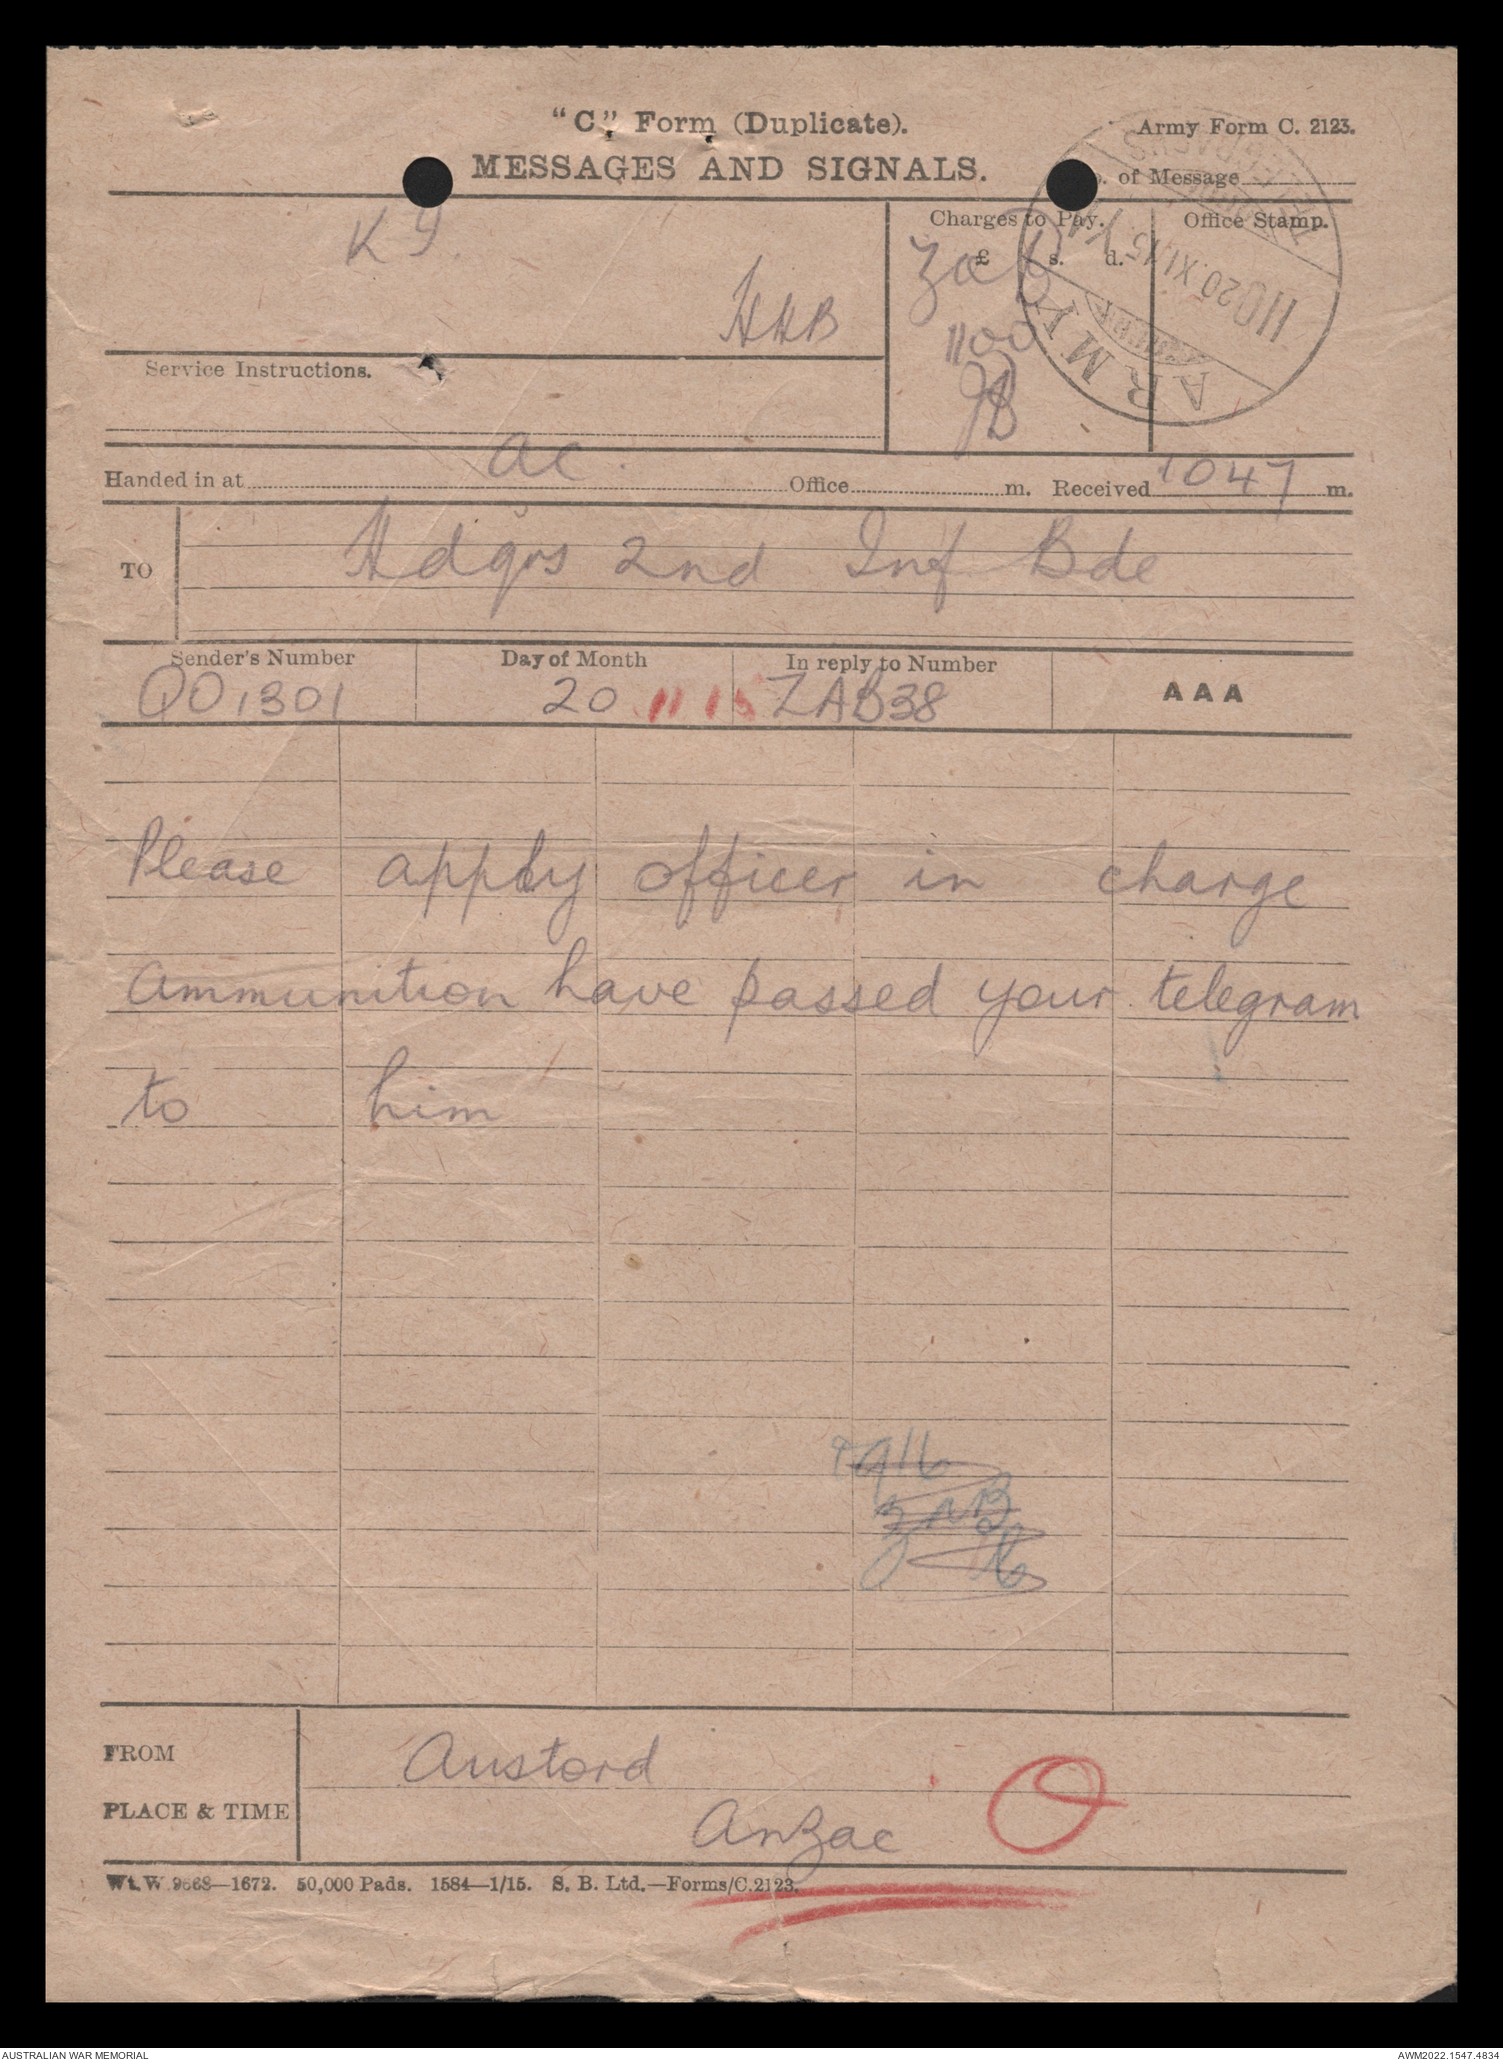 "C" Form (Duplicate).
Army Form C. 2123.
MESSAGES AND SIGNALS.
of Message
Charges to Pay.
Office Stamp.
£ s. d.
KY.
HHB
1100
ARMY
TELEGRAPHS
20.XI.15
Service Instructions.
Handed in at ac. Office m. Received 1047 m.
TO Hdqrs 2nd Inf Bde
Sender's Number
Day of Month
In reply to Number
QO1301
20 11 15
ZAB38
AAA
Please apply officer in charge
ammunition have passed your telegram
to him
ZAB
FROM Austord
PLACE & TIME Anzac
Wt. W. 9668—1672. 50,000 Pads. 1584—1/15. S. B. Ltd.—Forms/C.2123.
AUSTRALIAN WAR MEMORIAL
AWM2022.1547.4834